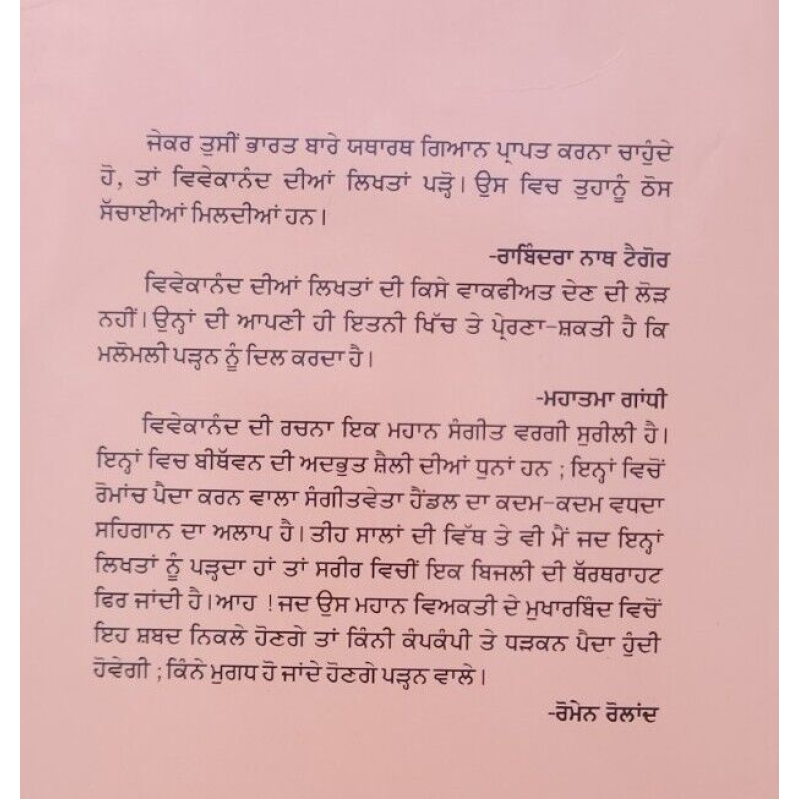 ਜੇਕਰ ਤੁਸੀਂ ਭਾਰਤ ਬਾਰੇ ਯਥਾਰਥ ਗਿਆਨ ਪ੍ਰਾਪਤ ਕਰਨਾ ਚਾਹੁੰਦੇ
ਹੋ, ਤਾਂ ਵਿਵੇਕਾਨੰਦ ਦੀਆਂ ਲਿਖਤਾਂ ਪੜ੍ਹੋ। ਉਸ ਵਿਚ ਤੁਹਾਨੂੰ ਠੋਸ
ਸੱਚਾਈਆਂ ਮਿਲਦੀਆਂ ਹਨ।
-ਰਾਬਿੰਦਰਾ ਨਾਥ ਟੈਗੋਰ
ਵਿਵੇਕਾਨੰਦ ਦੀਆਂ ਲਿਖਤਾਂ ਦੀ ਕਿਸੇ ਵਾਕਫੀਅਤ ਦੇਣ ਦੀ ਲੋੜ
ਨਹੀਂ। ਉਨ੍ਹਾਂ ਦੀ ਆਪਣੀ ਹੀ ਇਤਨੀ ਖਿੱਚ ਤੇ ਪ੍ਰੇਰਣਾ-ਸ਼ਕਤੀ ਹੈ ਕਿ
ਮਲੋਮਲੀ ਪੜ੍ਹਨ ਨੂੰ ਦਿਲ ਕਰਦਾ ਹੈ।
-ਮਹਾਤਮਾ ਗਾਂਧੀ
ਵਿਵੇਕਾਨੰਦ ਦੀ ਰਚਨਾ ਇਕ ਮਹਾਨ ਸੰਗੀਤ ਵਰਗੀ ਸੁਰੀਲੀ ਹੈ।
ਇਨ੍ਹਾਂ ਵਿਚ ਬੀਥੱਵਨ ਦੀ ਅਦਭੁਤ ਸ਼ੈਲੀ ਦੀਆਂ ਧੁਨਾਂ ਹਨ ; ਇਨ੍ਹਾਂ ਵਿਚੋਂ
ਰੋਮਾਂਚ ਪੈਦਾ ਕਰਨ ਵਾਲਾ ਸੰਗੀਤਵੇਤਾ ਹੈਂਡਲ ਦਾ ਕਦਮ-ਕਦਮ ਵਧਦਾ
ਸਹਿਗਾਨ ਦਾ ਅਲਾਪ ਹੈ। ਤੀਹ ਸਾਲਾਂ ਦੀ ਵਿੱਥ ਤੇ ਵੀ ਮੈਂ ਜਦ ਇਨ੍ਹਾਂ
ਲਿਖਤਾਂ ਨੂੰ ਪੜ੍ਹਦਾ ਹਾਂ ਤਾਂ ਸਰੀਰ ਵਿਚੀਂ ਇਕ ਬਿਜਲੀ ਦੀ ਥੱਰਥਰਾਹਟ
ਫਿਰ ਜਾਂਦੀ ਹੈ। ਆਹ ! ਜਦ ਉਸ ਮਹਾਨ ਵਿਅਕਤੀ ਦੇ ਮੁਖਾਰਬਿੰਦ ਵਿਚੋਂ
ਇਹ ਸ਼ਬਦ ਨਿਕਲੇ ਹੋਣਗੇ ਤਾਂ ਕਿੰਨੀ ਕੰਪਕੰਪੀ ਤੇ ਧੜਕਨ ਪੈਦਾ ਹੁੰਦੀ
ਹੋਵੇਗੀ ; ਕਿੰਨੇ ਮੁਗਧ ਹੋ ਜਾਂਦੇ ਹੋਣਗੇ ਪੜ੍ਹਨ ਵਾਲੇ।
-ਰੋਮੇਨ ਰੋਲਾਂਦ